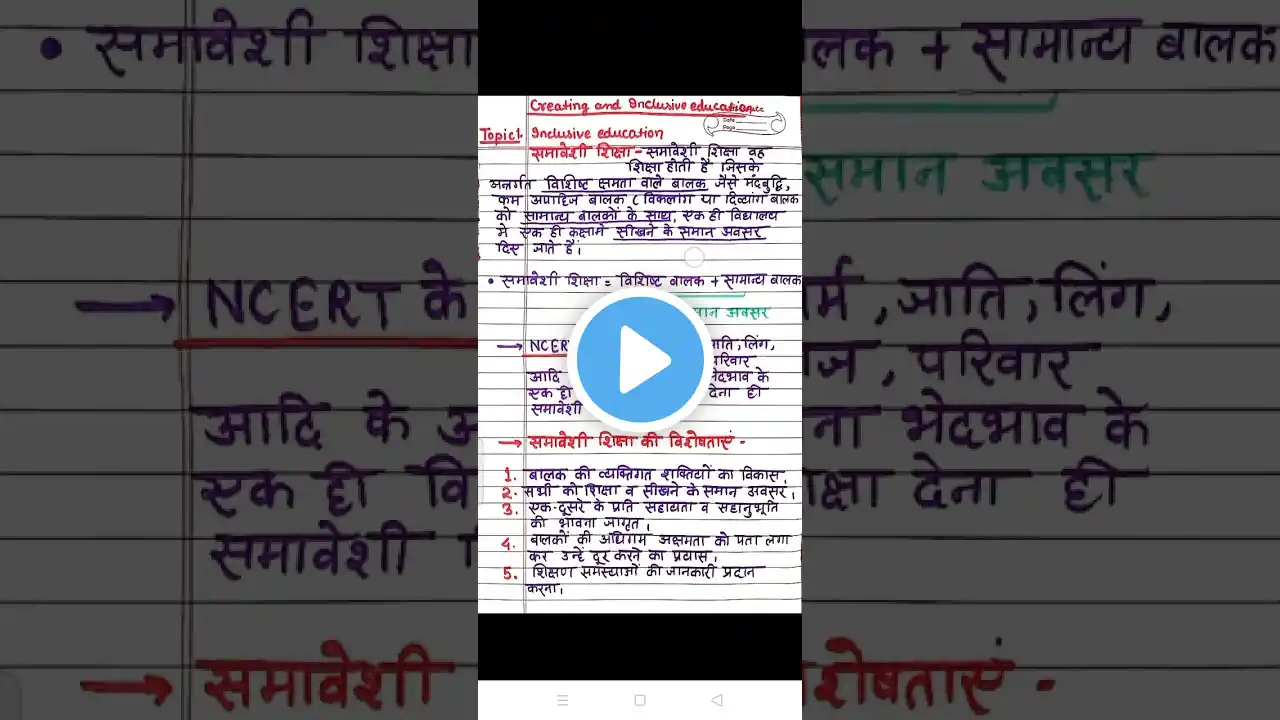 • समावेशी शिक्षा
लक + सामान्य बालक
Creating and Inclusive education
Date
Page
Topic1. Inclusive education
समावेशी शिक्षा - समावेशी शिक्षा वह
शिक्षा होती है जिसके
अन्तर्गत विशिष्ट क्षमता वाले बालक जैसे मंदबुद्धि,
कम अपाहिज बालक ( विकलांग या दिव्यांग बालक
को सामान्य बालकों के साथ, एक ही विद्यालय
मे एक ही कक्षामे सीखने के समान अवसर
दिए जाते है।
समान अवसर
• समावेशी शिक्षा = विशिष्ट बालक + सामान्य बालक
मान अवसर
→ NCERT के
र्म , जाति , लिंग,
→ NCER
ाति, लिंग,
परिवार
ज , परिवार
आदि
भेदभाव के
एक ही
देना ही
समावेशी
आदि के
ना भेदभाव के
→ समावेशी शिक्षा की विशेषताएं -
1. बालक की व्यक्तिगत शक्तियों का विकास,
2. सभी को शिक्षा व सीखने के समान अवसर,
एक ही वि
क्षा देना ही
3. एक-दूसरे के प्रति सहायता व सहानुभूति
की भावना जागृत,
4. बालकों की अधिगम अक्षमता को पता लगा
कर उन्हें दूर करने का प्रयास,
समावेशी
5. शिक्षण समस्याओं की जानकारी प्रदान
करना,
→ समावेशी
शेषताएं -